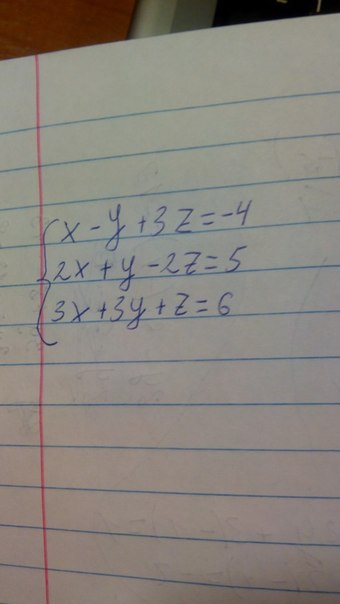 x-y+3z=-4
2x+y-2z=5
3x+3y+z=6